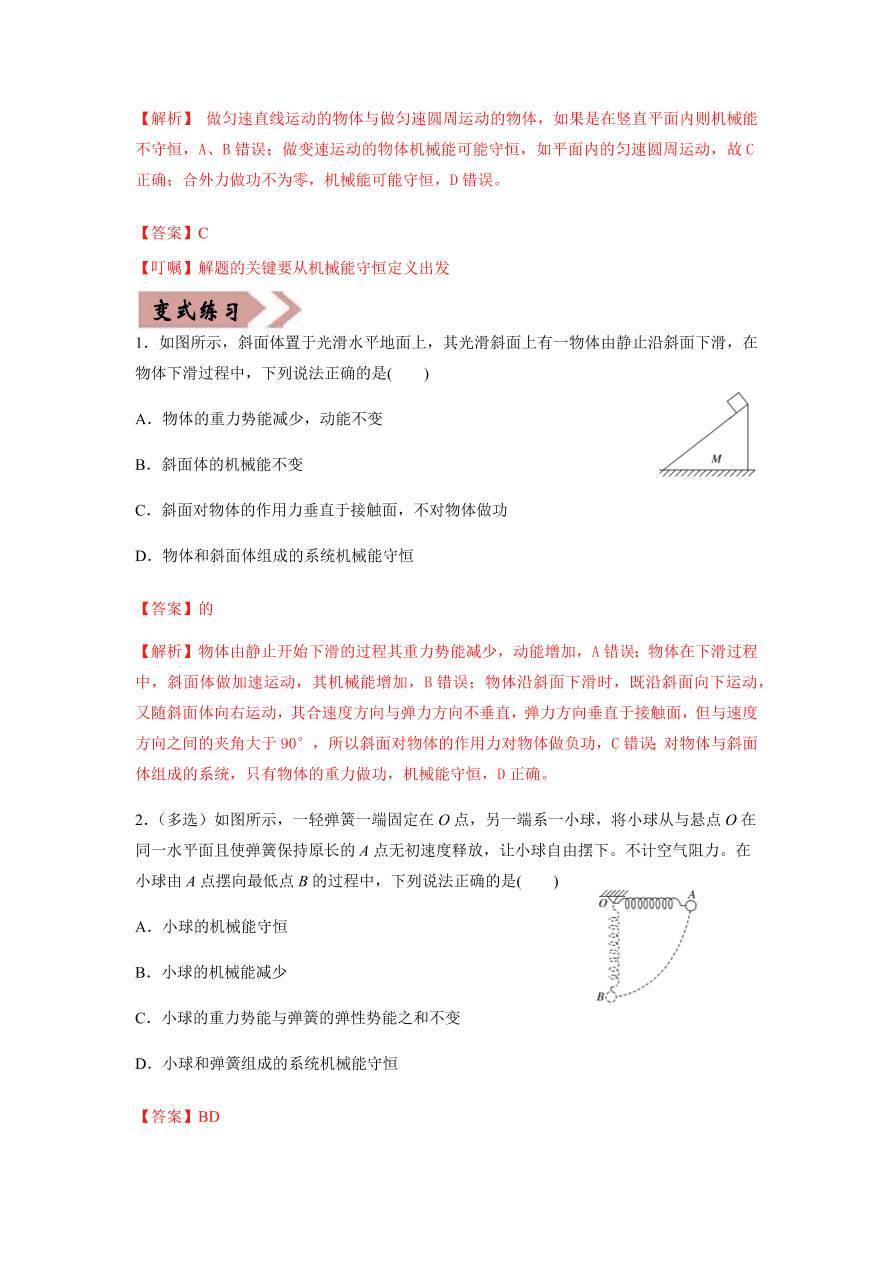 【解析】 做匀速直线运动的物体与做匀速圆周运动的物体，如果是在竖直平面内则机械能
不守恒，A、B 错误；做变速运动的物体机械能可能守恒，如平面内的匀速圆周运动，故 C
正确；合外力做功不为零，机械能可能守恒，D 错误。
【答案】C
【叮嘱】解题的关键要从机械能守恒定义出发
变式练习
1．如图所示，斜面体置于光滑水平地面上，其光滑斜面上有一物体由静止沿斜面下滑，在
物体下滑过程中，下列说法正确的是(　　)
A．物体的重力势能减少，动能不变
B．斜面体的机械能不变
C．斜面对物体的作用力垂直于接触面，不对物体做功
D．物体和斜面体组成的系统机械能守恒
M
【答案】的
【解析】物体由静止开始下滑的过程其重力势能减少，动能增加，A 错误；物体在下滑过程
中，斜面体做加速运动，其机械能增加，B 错误；物体沿斜面下滑时，既沿斜面向下运动，
又随斜面体向右运动，其合速度方向与弹力方向不垂直，弹力方向垂直于接触面，但与速度
方向之间的夹角大于 90°，所以斜面对物体的作用力对物体做负功，C 错误；对物体与斜面
体组成的系统，只有物体的重力做功，机械能守恒，D 正确。
2．（多选）如图所示，一轻弹簧一端固定在 O 点，另一端系一小球，将小球从与悬点 O 在
同一水平面且使弹簧保持原长的 A 点无初速度释放，让小球自由摆下。不计空气阻力。在
小球由 A 点摆向最低点 B 的过程中，下列说法正确的是(　　)
A．小球的机械能守恒
B．小球的机械能减少
C．小球的重力势能与弹簧的弹性势能之和不变
D．小球和弹簧组成的系统机械能守恒
O
A
B
【答案】BD